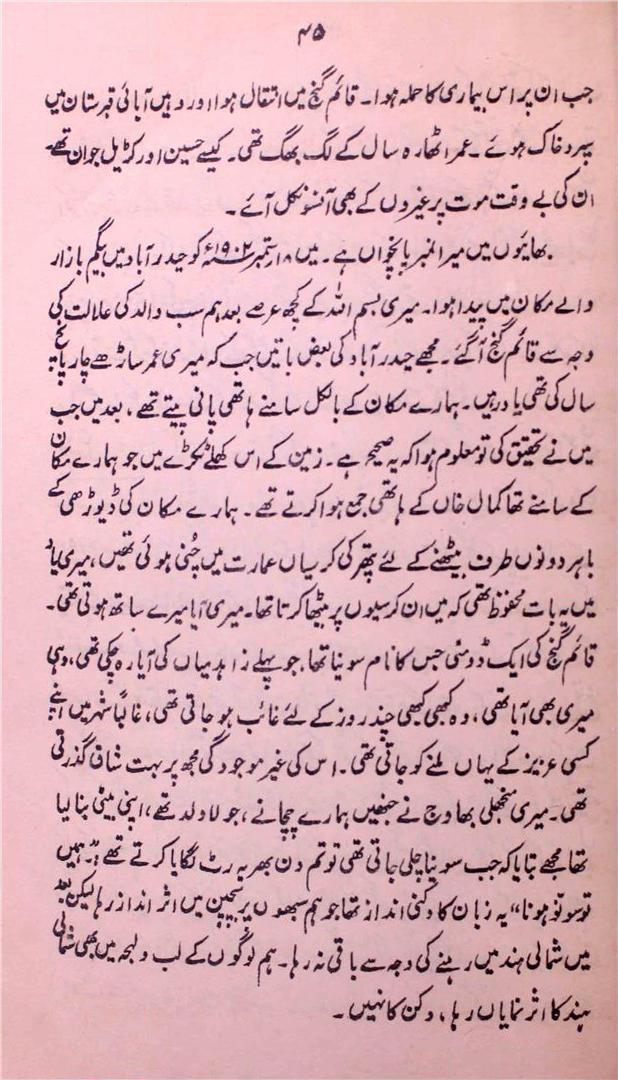 ۴۵
جب ان پر اس بیماری کا حملہ ہوا۔ قائم گنج میں انتقال ہوا اور وہیں آبائی قبرستان میں
سپرد خاک ہوئے۔ عمر اٹھارہ سال کے لگ بھگ تھی۔ کیسے حسین اور کڑیل جوان تھے
ان کی بے وقت موت پر غیروں کے بھی آنسو نکل آئے۔
بھائیوں میں میرا نمبر پانچواں ہے۔ میں ۱۸ ستمبر ۱۹۰۲ء کو حیدر آباد میں بیگم بازار
والے مکان میں پیدا ہوا۔ میری بسم اللہ کے کچھ عرصے بعد ہم سب والد کی علالت کی
وجہ سے قائم گنج آگئے۔ مجھے حیدر آباد کی بعض باتیں جب کہ میری عمر ساڑھے چار پانچ
سال کی تھی یاد رہیں۔ ہمارے مکان کے بالکل سامنے ہاتھی پانی پیتے تھے، بعد میں جب
میں نے تحقیق کی تو معلوم ہوا کہ یہ صحیح ہے۔ زمین کے اس کھلے ٹکڑے میں جو ہمارے مکان
کے سامنے تھا کمال خاں کے ہاتھی جمع ہوا کرتے تھے۔ ہمارے مکان کی ڈیوڑھی کے
باہر دونوں طرف بیٹھنے کے لئے پتھر کی کرسیاں عمارت میں چُنی ہوئی تھیں، میری یاد
میں یہ بات محفوظ تھی کہ میں ان کرسیوں پر بیٹھا کرتا تھا۔ میری آیا میرے ساتھ ہوتی تھی۔
قائم گنج کی ایک ڈومنی جس کا نام سونیا تھا، جو پہلے زاہد میاں کی آیا رہ چکی تھی، وہی
میری بھی آیا تھی، وہ کبھی کبھی چند روز کے لئے غائب ہو جاتی تھی، غالباً شہر میں اپنے
کسی عزیز کے یہاں ملنے کو جاتی تھی۔ اس کی غیر موجودگی مجھ پر بہت شاق گذرتی
تھی۔ میری منجھلی بھاوج نے جنھیں ہمارے چچا نے، جو لا ولد تھے، اپنی بیٹی بنا لیا
تھا مجھے بتایا کہ جب سونیا چلی جاتی تھی تو تم دن بھر یہ رٹ لگایا کرتے تھے: "ہمیں
تو سونو ہونا" یہ زبان کا دکنی انداز تھا جو ہم سبھوں پر بچپن میں اثر انداز رہا لیکن بعد
میں شمالی ہند میں رہنے کی وجہ سے باقی نہ رہا۔ ہم لوگوں کے لب و لہجہ میں بھی شمالی
ہند کا اثر نمایاں رہا، دکن کا نہیں۔